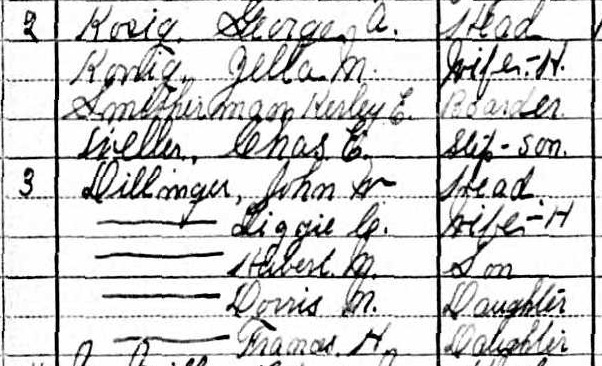 2 Kosig, George A. Head
Konig, Zella M. Wife-H.
Smitherman Kerley E. Boarder
Chas E. Step-son.
3 Dillinger, John W Head
—— Liggie C. Wife-H
—— Hubert M. Son
—— Dorris M. Daughter
—— Frances H. Daughter